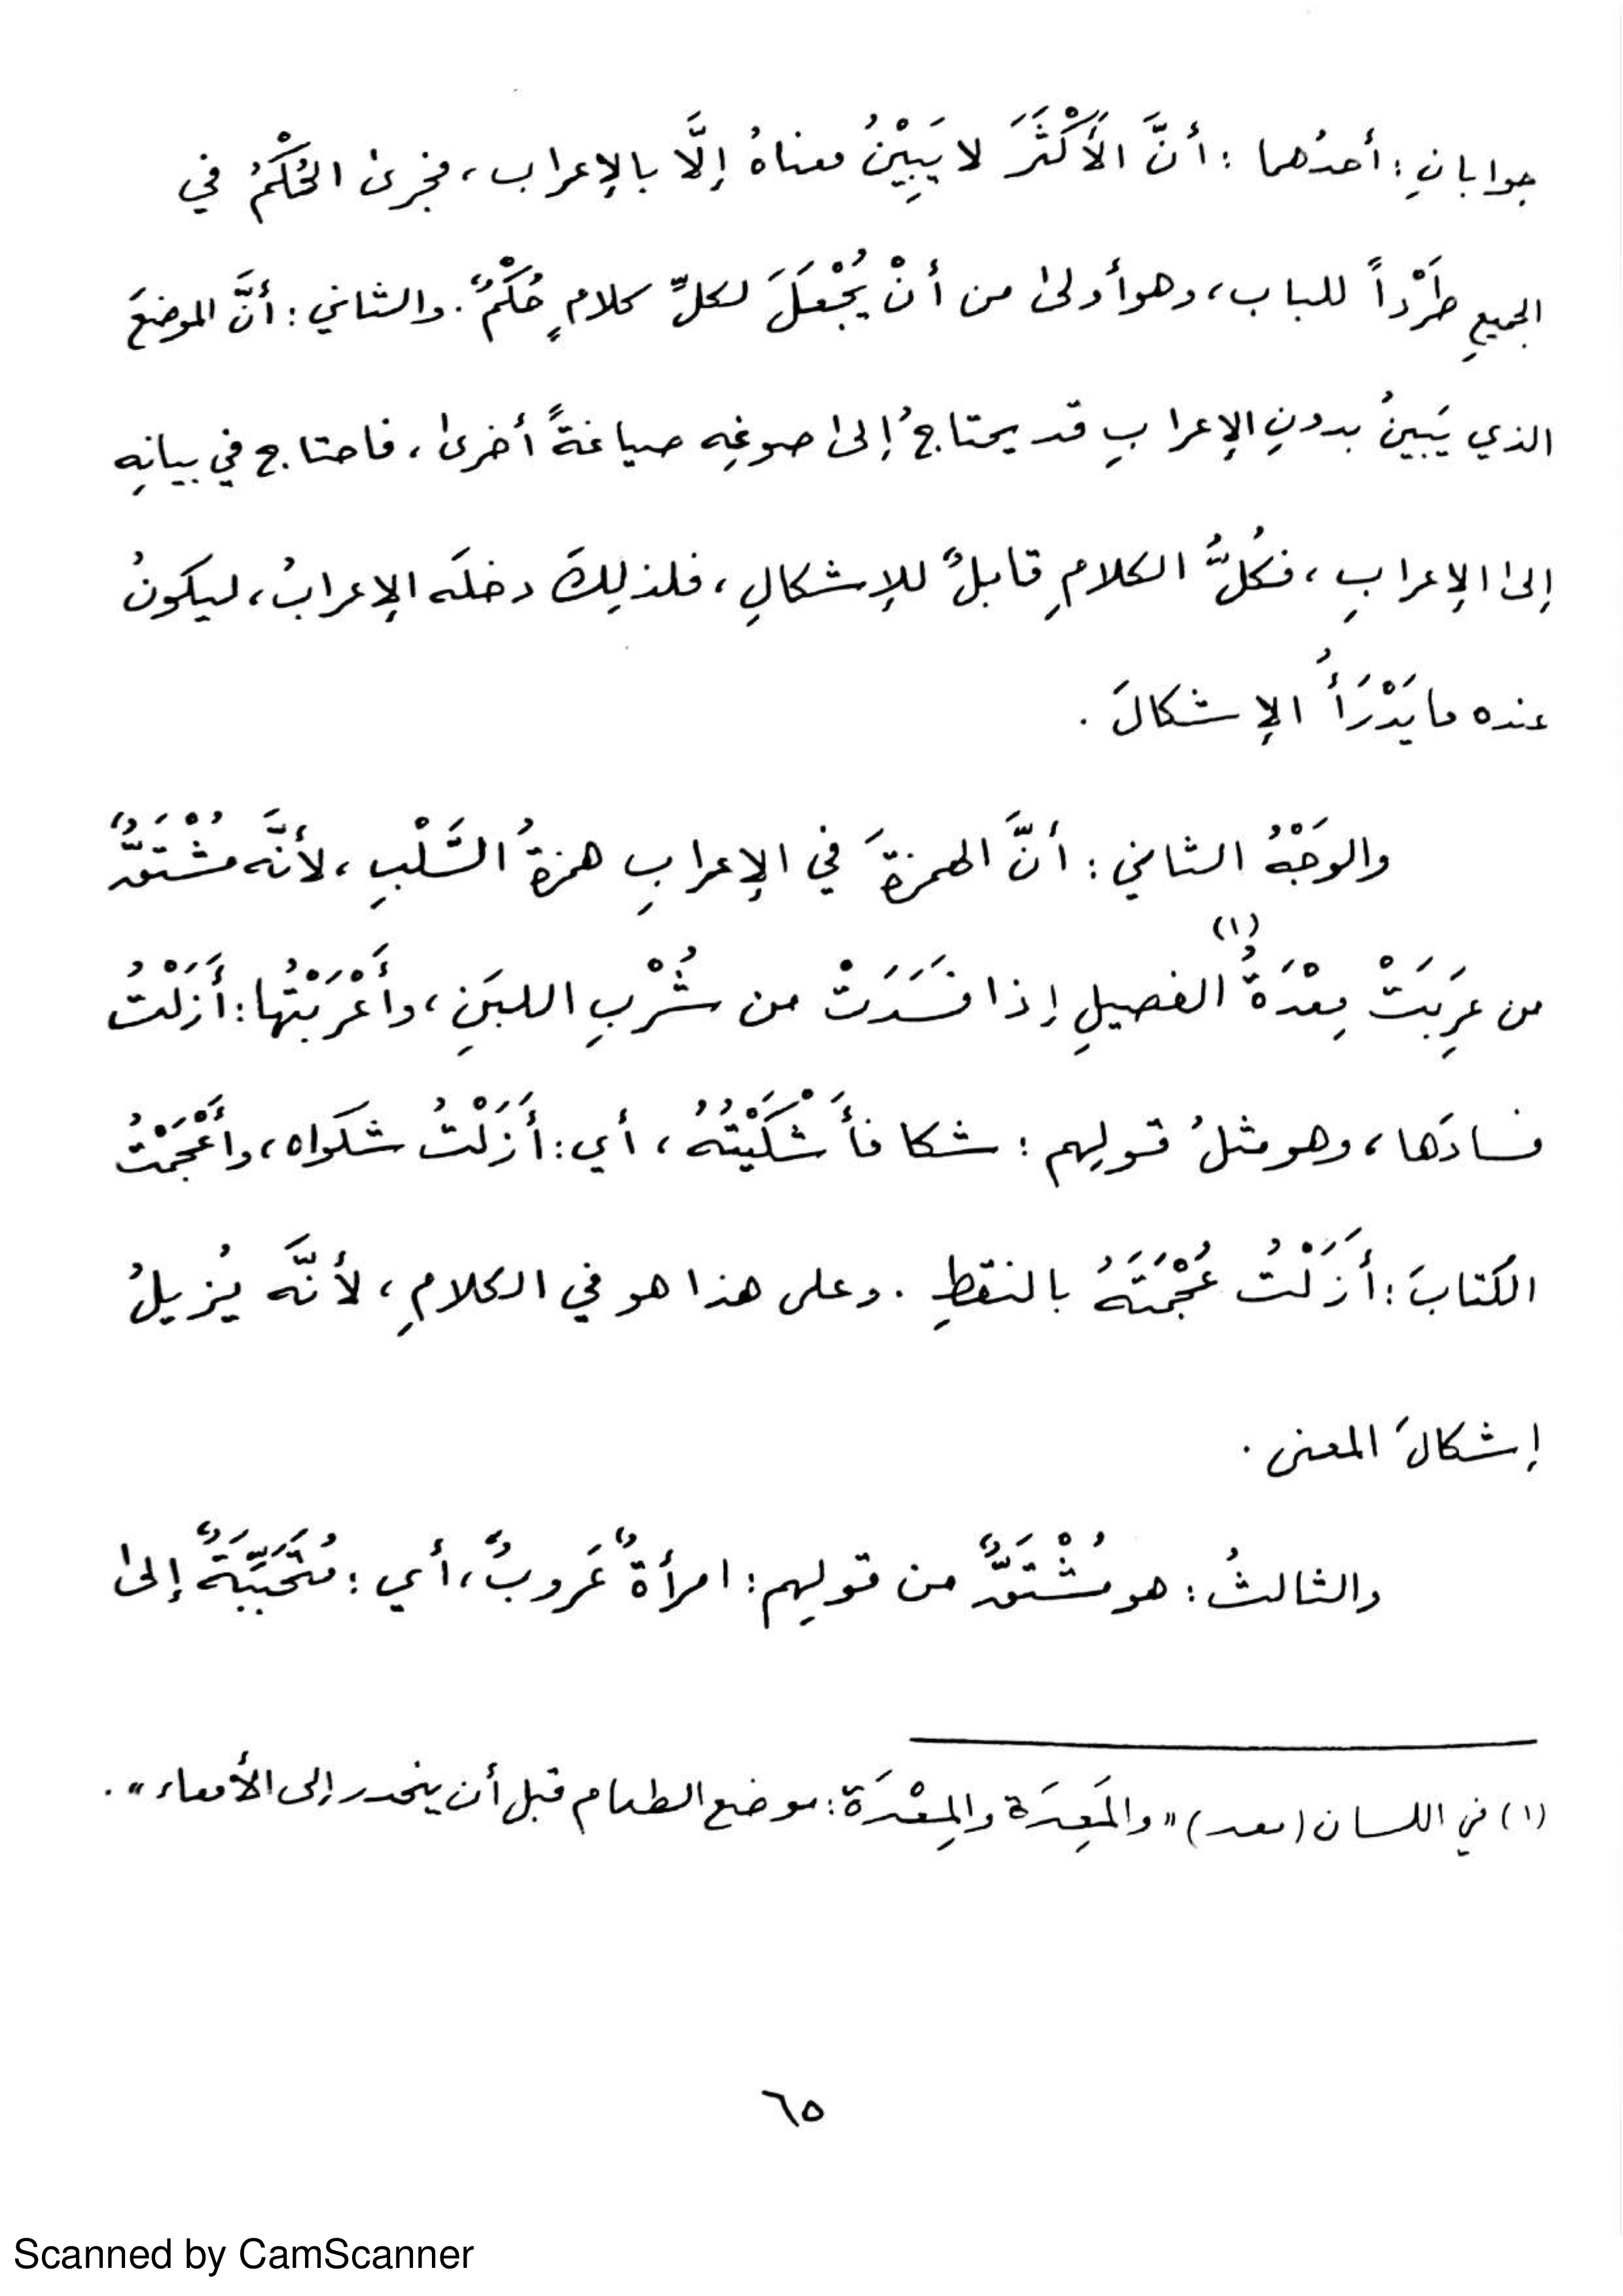 جوابانِ : أحدُهما : أنَّ الأَكْثَرَ لا يَبِيْنُ معناهُ إلَّا بالإعراب ، فجرىٰ الحُكْمُ في
الجميعِ طَرْداً للباب ، وهو أولىٰ من أنْ يُجْعَلَ لكلِّ كلامٍ حُكْمٌ . والثاني : أنَّ الموضعَ
الذي يَبينُ بدونِ الإعرابِ قد يحتاجُ إلىٰ صوغِه صياغةً أخرىٰ ، فاحتاج في بيانِه
إلىٰ الإعرابِ ، فكُلُّ الكلامِ قابلٌ للإشكالِ ، فلذلِكَ دخلَه الإعرابُ ، ليكونُ
عنده ما يَدْرَأُ الإشكالَ .
والوَجْهُ الثاني : أنَّ الهمزةَ في الإعرابِ همزةُ السَّلْبِ ، لأنَّه مُشْتَقٌّ
من عَرِبَتْ مِعْدَةُ (١) الفصيلِ إذا فَسَدَتْ من شُرْبِ اللبَنِ ، وأَعْرَبْتُها : أَزَلْتُ
فسادَها ، وهو مثلُ قولِهم : شكا فأَشْكَيْتُهُ ، أي : أَزَلْتُ شكواه ، وأَعْجَمْتُ
الكتابَ : أَزَلْتُ عُجْمَتَهُ بالنقطِ . وعلى هذا هو في الكلامِ ، لأنَّه يُزيلُ
إشكالَ المعنى .
والثالثُ : هو مُشْتَقٌّ من قولِهم : امرأةٌ عَروبٌ ، أي : مُتَحَبِّبَةٌ إلىٰ
(١) في اللسان (معد) « والمَعِدَة والمِعْدَة : موضع الطعام قبل أن ينحدر إلى الأمعاء » .
٦٥
Scanned by CamScanner